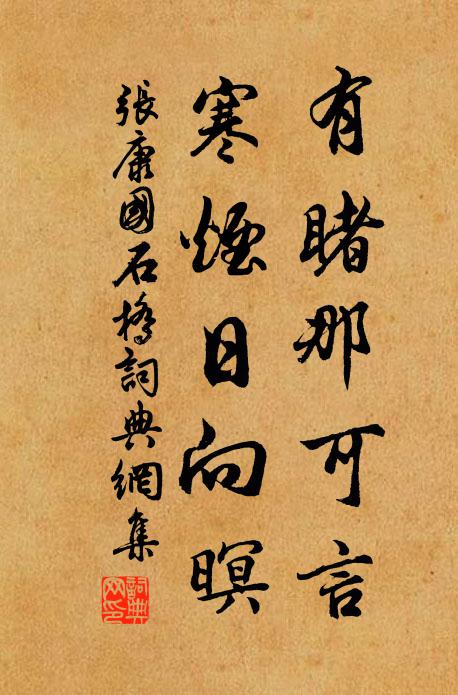 有睹那可言
寒煙日向暝
張康國石橋詞典網集
詞典
网印